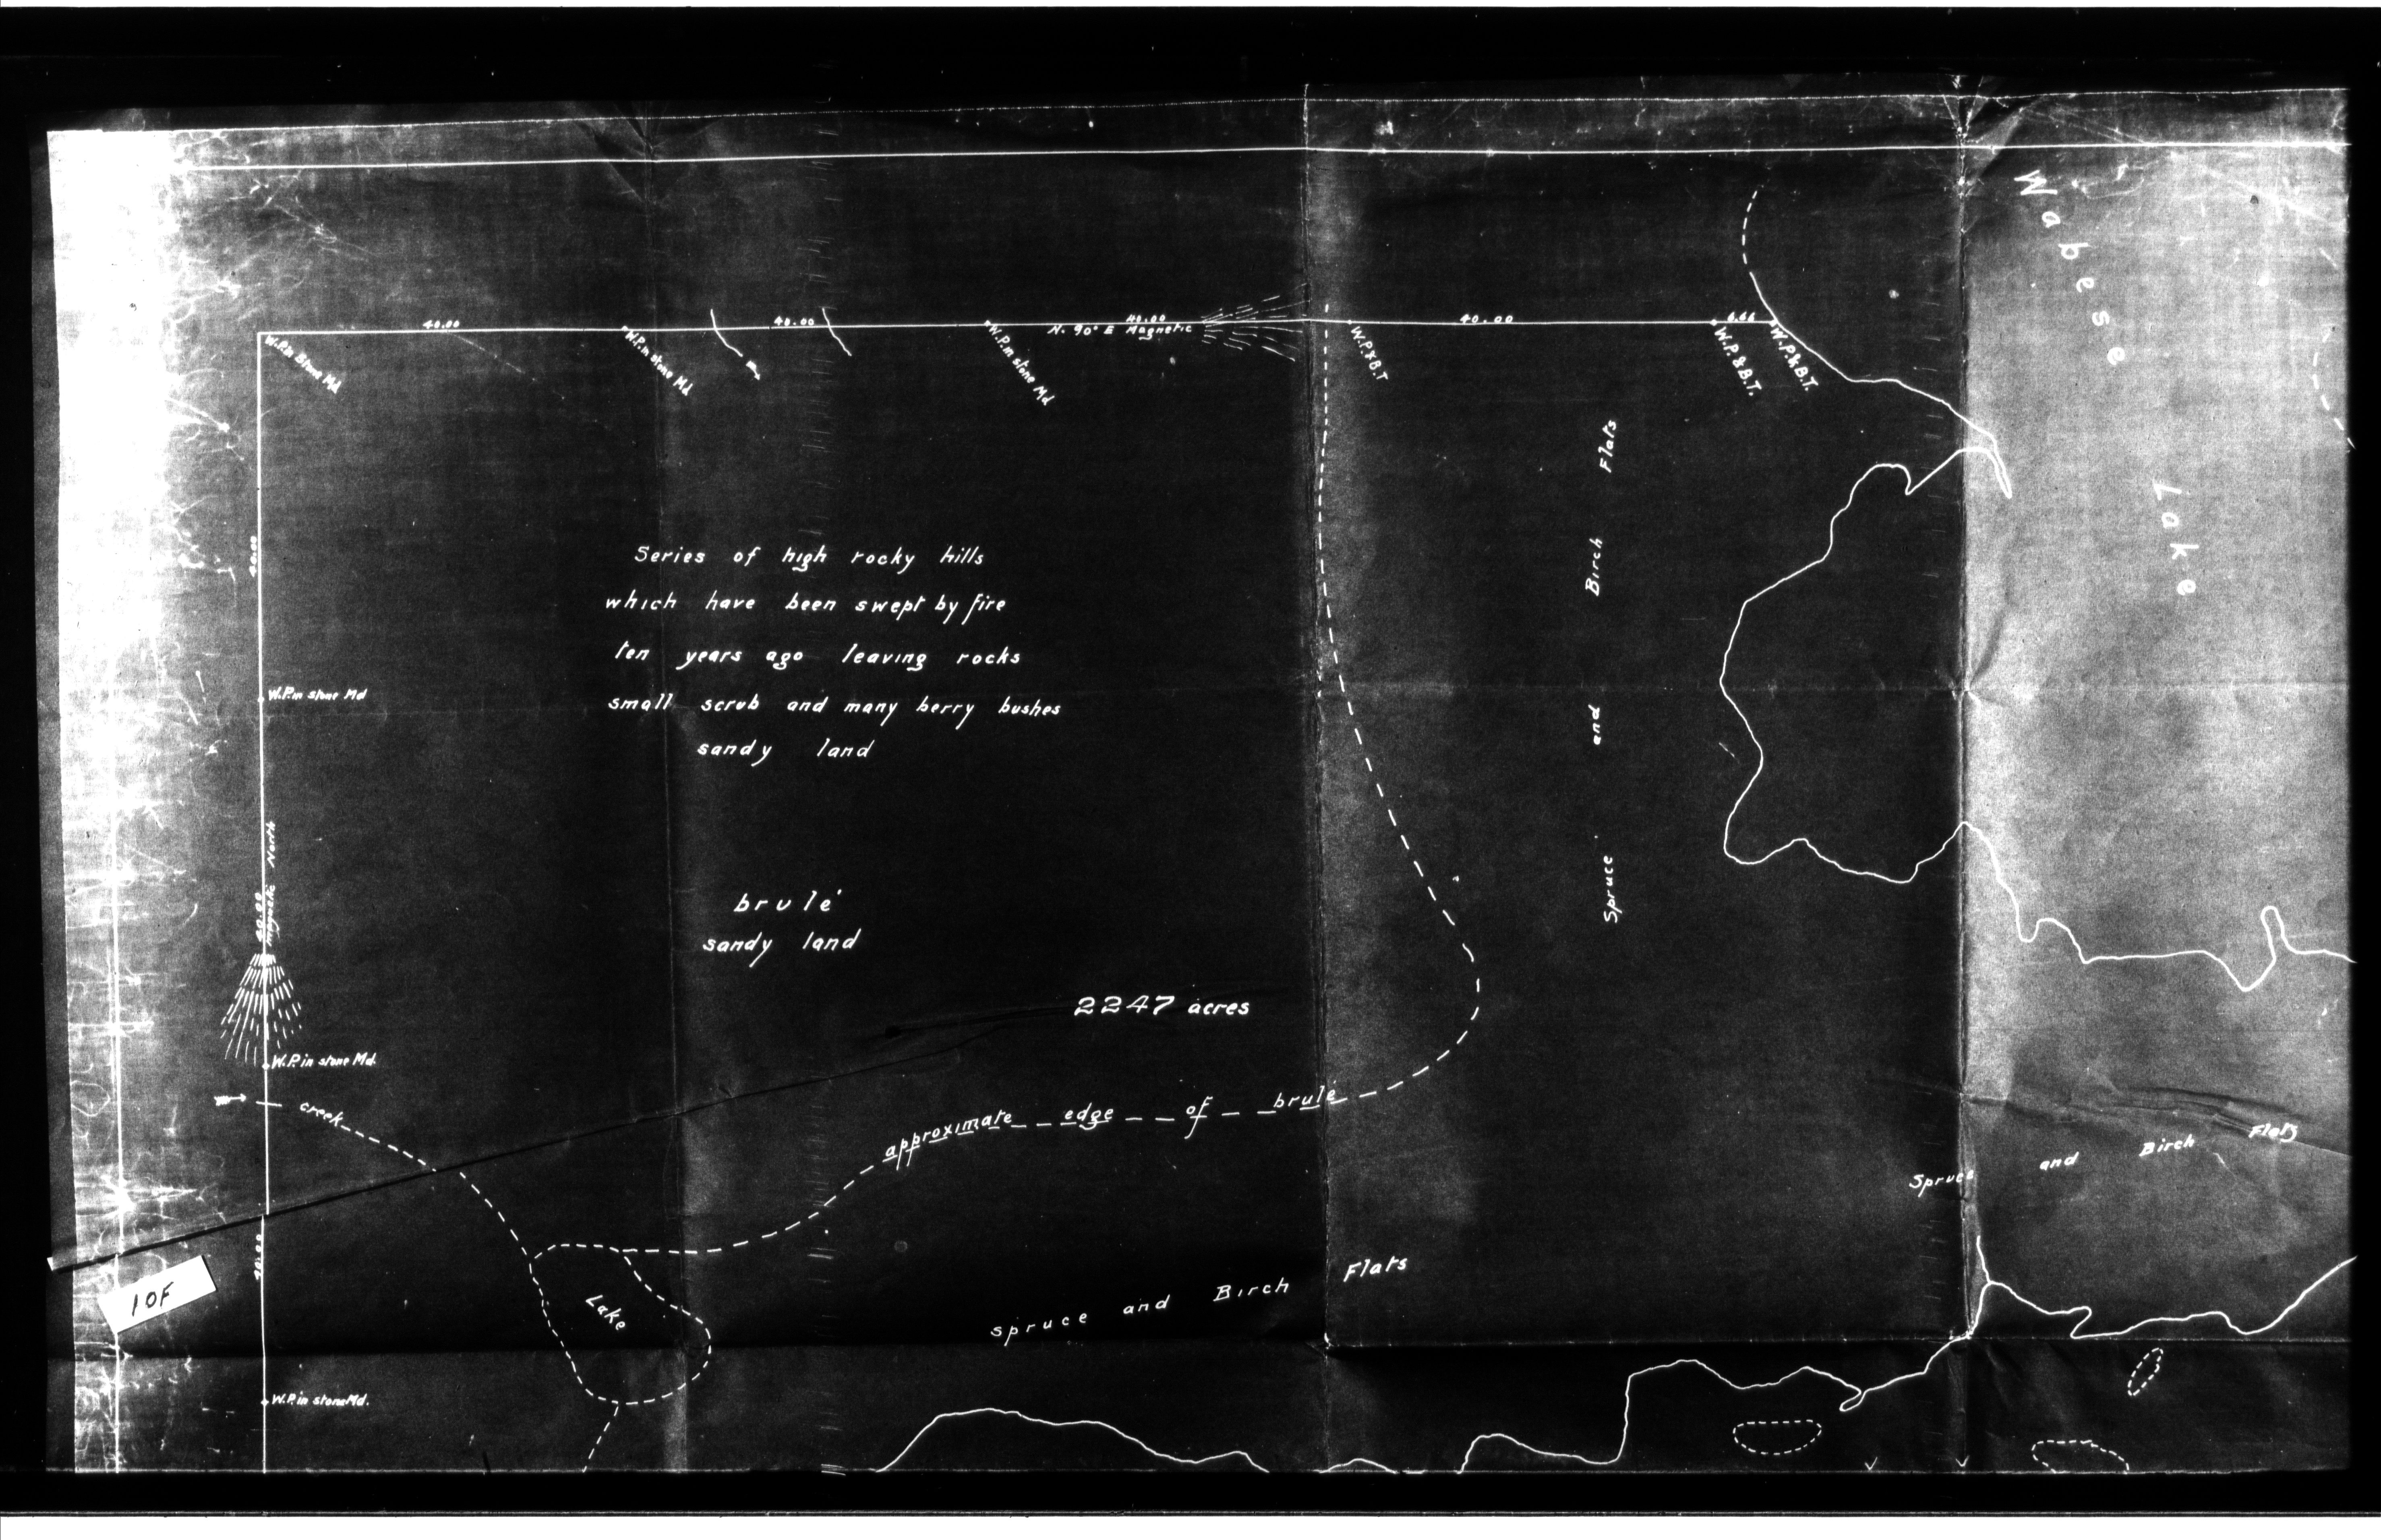 Wabese Lake
40.00
40.00
40.00
N. 90° E Magnetic
40.00
6.66
W.P. in Stone Md
W.P. in stone Md
W.P. in stone Md
W.P. & B.T
W.P. & B.T.
W.P. & B.T.
40.00
Series of high rocky hills
which have been swept by fire
ten years ago leaving rocks
small scrub and many berry bushes
sandy land
Spruce and Birch Flats
W.P. in stone Md
40.00
magnetic North
brulé
sandy land
2247 acres
W.P. in stone Md.
creek
approximate edge of brulé
Spruce and Birch Flats
40.00
Lake
spruce and Birch Flats
10F
W.P. in stone Md.